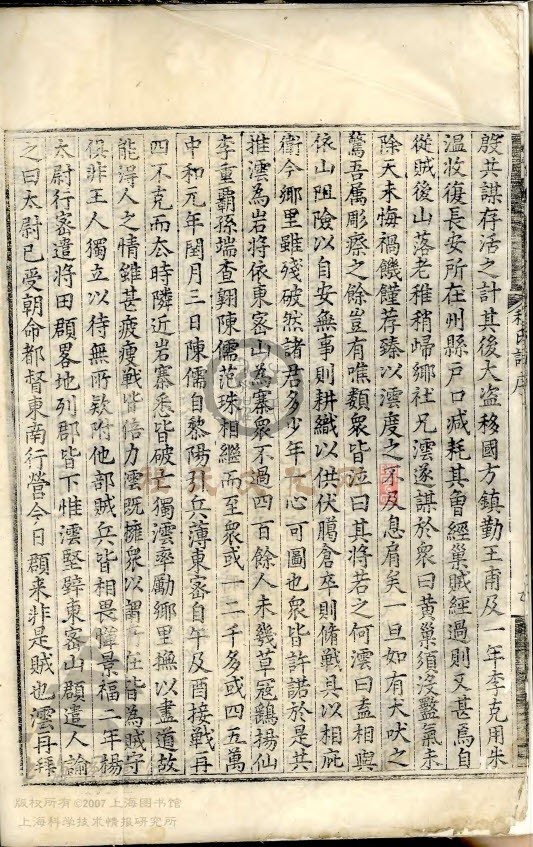 殷共謀存活之計其後大盗移國方鎮勤王甫及一年李克用朱
温收復長安所在州縣戸口減耗其曾經巢賊經過則又甚焉自
從賊後山落老稚稍歸鄉社兄澐遂謀於衆曰黄巢須没豔氣未
除天未悔禍饑饉荐臻以澐度之未及息肩矣一旦如有犬吠之
驚吾属彫瘵之餘豈有噍類衆皆泣曰其將若之何澐曰盍相與
依山阻險以自安無事則耕織以供伏臈倉卒則脩戦具以相庇
衛今鄉里雖殘破然諸君多少年一心可圖也衆皆許諾於是共
推澐為岩将依東宻山為寨衆不過四百餘人未幾草寇鷂揚仙
李重霸孫端查翺陳儒范珠相繼而至衆或一二千多或四五萬
中和元年閏月三日陳儒自黎陽引兵薄東宻自午及酉接戦再
四不克而去時隣近岩寨悉皆破亡獨澐率勵鄉里撫以盡道故
能得人之情雖甚疲瘦戦皆倍力澐既擁衆以謂所在皆為賊守
俱非王人獨立以待無所欵附他部賊兵皆相畏憚景福二年揚
太尉行宻遣將田頵畧地列郡皆下惟澐堅壁東宻山頵遣人諭
之曰太尉已受朝命都督東南行營今日頵来非是賊也澐再拜
程氏譜序
版权所有©2007 上海图书馆
上海科学技术情报研究所